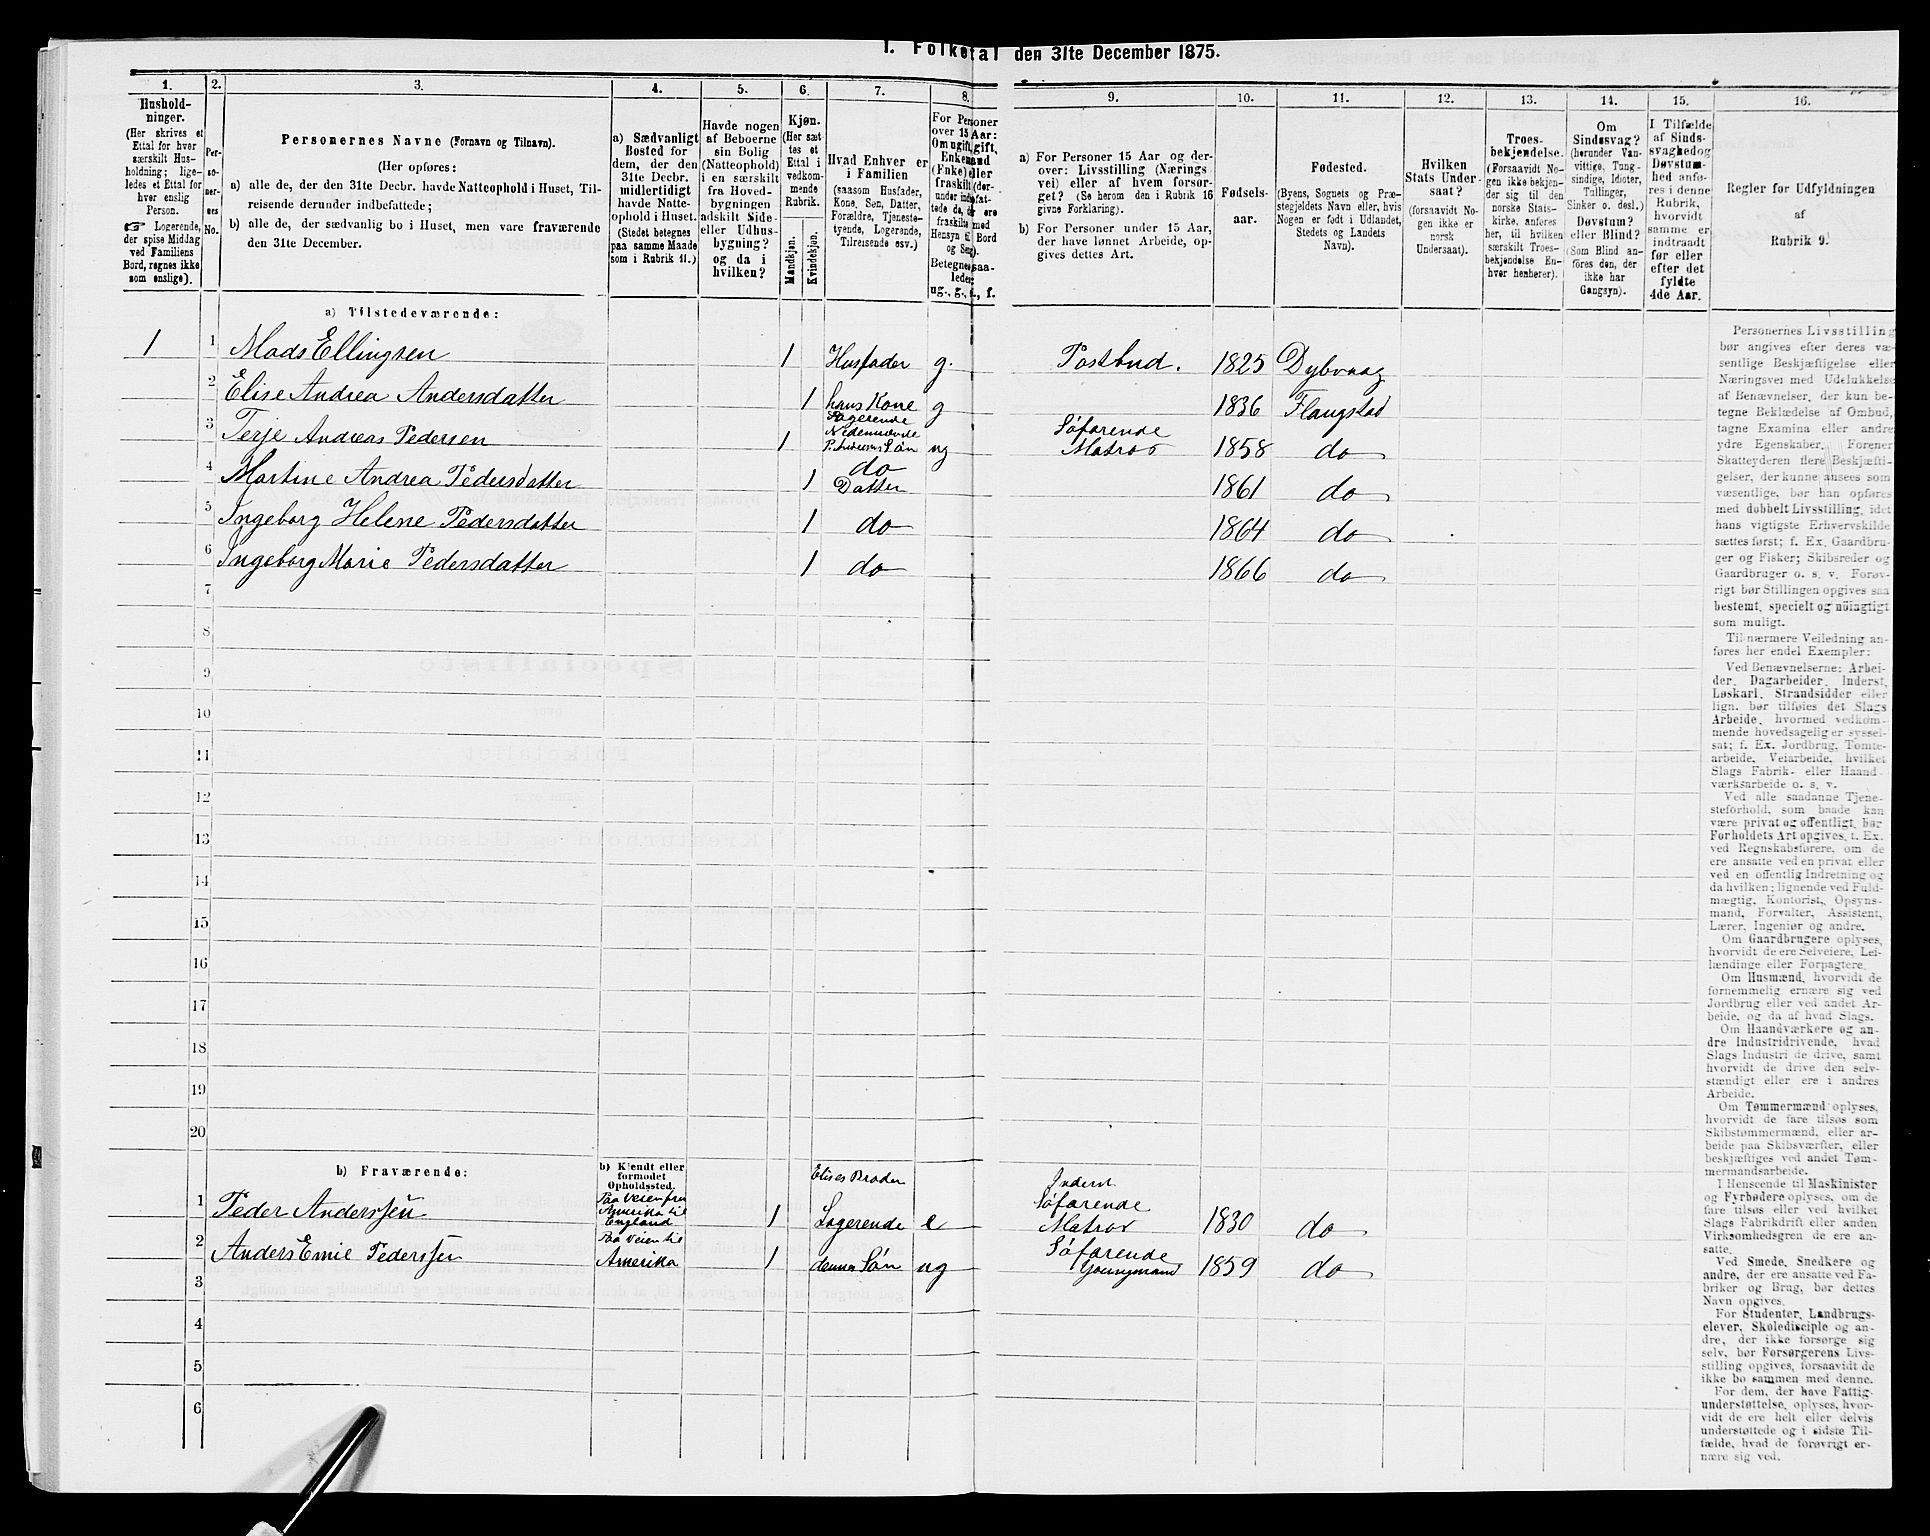 1. Folketal den 31te December 1875.
1. 2. 3. 4. 5. 6. 7. 8. 9. 10. 11. 12. 13. 14. 15. 16.
Hushold-
ninger.
(Her skrives et
Ettal for hver
særskilt Hus-
holdning; lige-
ledes et Ettal for
hver enslig
Person.
☞ Logerende,
der spise Middag
ved Familiens
Bord, regnes ikke
som enslige).
Per-
so-
ner-
nes
No.
Personernes Navne (Fornavn og Tilnavn).
(Her opføres:
a) alle de, der den 31te Decbr. havde Natteophold i Huset, Til-
reisende derunder indbefattede;
b) alle de, der sædvanlig bo i Huset, men vare fraværende
den 31te December.
a) Sædvanligt
Bosted for
dem, der den
31te Decbr.
midlertidigt
havde Natte-
ophold i Huset.
(Stedet betegnes
paa samme Maade
som i Rubrik 11.)
Havde nogen
af Beboerne
sin Bolig
(Natteophold)
i en særskilt
fra Hoved-
bygningen
adskilt Side-
eller Udhus-
bygning?
og da i
hvilken?
Kjøn.
(Her sæt
tes et
Ettal i
vedkom-
mende
Rubrik.
Mandkjøn.
Kvindekjøn.
Hvad Enhver er
i Familien
(saasom Husfader,
Kone, Søn, Datter,
Forældre, Tjeneste-
tyende, Logerende,
Tilreisende osv.)
For Personer
over 15 Aar:
Om ugift, gift,
Enkemand
(Enke) eller
fraskilt
ug., g., e., f.
a) For Personer 15 Aar og der-
over: Livsstilling (Nærings
vei) eller af hvem forsør-
get? (Se herom den i Rubrik 16
givne Forklaring).
b) For Personer under 15 Aar,
der have lønnet Arbeide, op-
gives dettes Art.
Fødsels-
aar.
Fødested.
(Byens, Sognets og Præ-
stegjeldets Navn eller, hvis
Nogen er født i Udlandet,
Stedets og Landets
Navn).
Hvilken
Stats Under-
saat?
(forsaavidt No-
gen ikke er
norsk
Undersaat).
Troes-
bekjendelse.
(Forsaavidt No-
gen ikke bekjen-
der sig til den
norske Stats-
kirke, anføres
her, til hvilken
særskilt Troes-
bekjendelse En-
hver henhører).
Om
Sindssvag?
(herunder Van-
vittige, Tung-
sindige, Idioter,
Tullinger,
Sinker o. desl.)
Døvstum?
eller Blind?
(Som Blind an-
føres den, der
ikke har
Gangsyn).
I Tilfælde
af Sinds-
svaghed og
Døvstum-
hed anfø-
res i denne
Rubrik,
hvorvidt
samme er
indtraadt
før eller
efter det
fyldte
4de Aar.
Regler for Udfyldningen
af
Rubrik 9.
a) Tilstedeværende:
1 1 Mads Ellingsen 1 Husfader g. Postbud. 1825 Dybvaag
2 Elise Andrea Andersdatter 1 hans Kone g 1836 Flangstad
3 Terje Andreas Pedersen 1 Logerende Nedennævnte P. Andersens Søn ug Søfarende Matros 1858 do
4 Martine Andrea Pedersdatter 1 do Datter 1861 do
5 Ingeborg Helene Pedersdatter 1 do 1864 do
6 Ingeborg Marie Pedersdatter 1 do 1866 do
7
8
9
10
11
12
13
14
15
16
17
18
19
20
b) Fraværende:
b) Kjendt eller
formodet
Opholdssted.
1 Peder Anderssen Paa Veien fra Amerika til England 1 Elises Broder Logerende e Inderst Søfarende Matros 1830 do
2 Anders Emil Pederssen Paa Veien til Amerika 1 dennes Søn ug Søfarende Youngmand 1859 do
3
4
5
6
Personernes Livsstilling
bør angives efter deres væ-
sentlige Beskjæftigelse eller
Næringsvei med Udelukkelse
af Benævnelser, der kun be-
tegne Beklædelse af Ombud,
tagne Examina eller andre
ydre Egenskaber. Forener
Skatteyderen flere Beskjæfti-
gelser, der kunne ansees som
væsentlige, bør han opføres
med dobbelt Livsstilling, idet
hans vigtigste Erhvervskilde
sættes først; f. Ex. Gaardbru-
ger og Fisker; Skibsreder og
Gaardbruger o. s. v. Forøv-
rigt bør Stillingen opgives saa
bestemt, specielt og nøiagtigt
som muligt.
Til nærmere Veiledning an-
føres her endel Exempler:
Ved Benævnelserne: Arbei-
der, Dagarbeider, Inderst,
Løskarl, Strandsidder eller
lign. bør tilføies det Slags
Arbeide, hvormed vedkom-
mende hovedsagelig er syssel-
sat; f. Ex. Jordbrug, Tømte-
arbeide, Veiarbeide, hvilket
Slags Fabrik- eller Haand-
værksarbeide o. s. v.
Ved alle saadanne Tjene-
steforhold, som baade kan
være privat og offentligt, bør
Forholdets Art opgives, t. Ex.
ved Regnskabsførere, om de
ere ansatte ved en privat eller
ved en offentlig Indretning og
da hvilken; lignende ved Fuld-
mægtig, Kontorist, Opsyns-
mand, Forvalter, Assistent,
Lærer, Ingeniør og andre.
Om Gaardbrugere oplyses,
hvorvidt de ere Selveiere, Lei-
lændinge eller Forpagtere.
Om Husmænd, hvorvidt de
fornemmelig ernære sig ved
Jordbrug eller ved andet Ar-
beide, og da af hvad Slags.
Om Haandværkere og an-
dre Industridrivende, hvad
Slags Industri de drive, samt
hvorvidt de drive den selv-
stændigt eller ere i andres
Arbeide.
Om Tømmermænd oplyses,
hvorvidt de fare tilsøs som
Skibstømmermænd, eller ar-
beide paa Skibsværfter, eller
beskjæftiges ved andet Tøm-
mermandsarbeide.
I Henseende til Maskinister
og Fyrbødere oplyses, om de
fare tilsøs eller ved hvilket
Slags Fabrikdrift eller anden
Virksomhedsgren de ere an-
satte.
Ved Smede, Snedkere og
andre, der ere ansatte ved Fa-
briker og Brug, bør dettes
Navn opgives.
For Studenter, Landbrugs-
elever, Skoledisciple og an-
dre, der ikke forsørge sig
selv, bør Forsørgerens Livs-
stilling opgives, forsaavidt de
ikke bo sammen med denne.
For dem, der have Fattig-
understøttelse, oplyses, hvor-
vidt de ere helt eller delvis
understøttede og i sidste Til-
fælde, hvad de forøvrigt er-
nære sig ved.